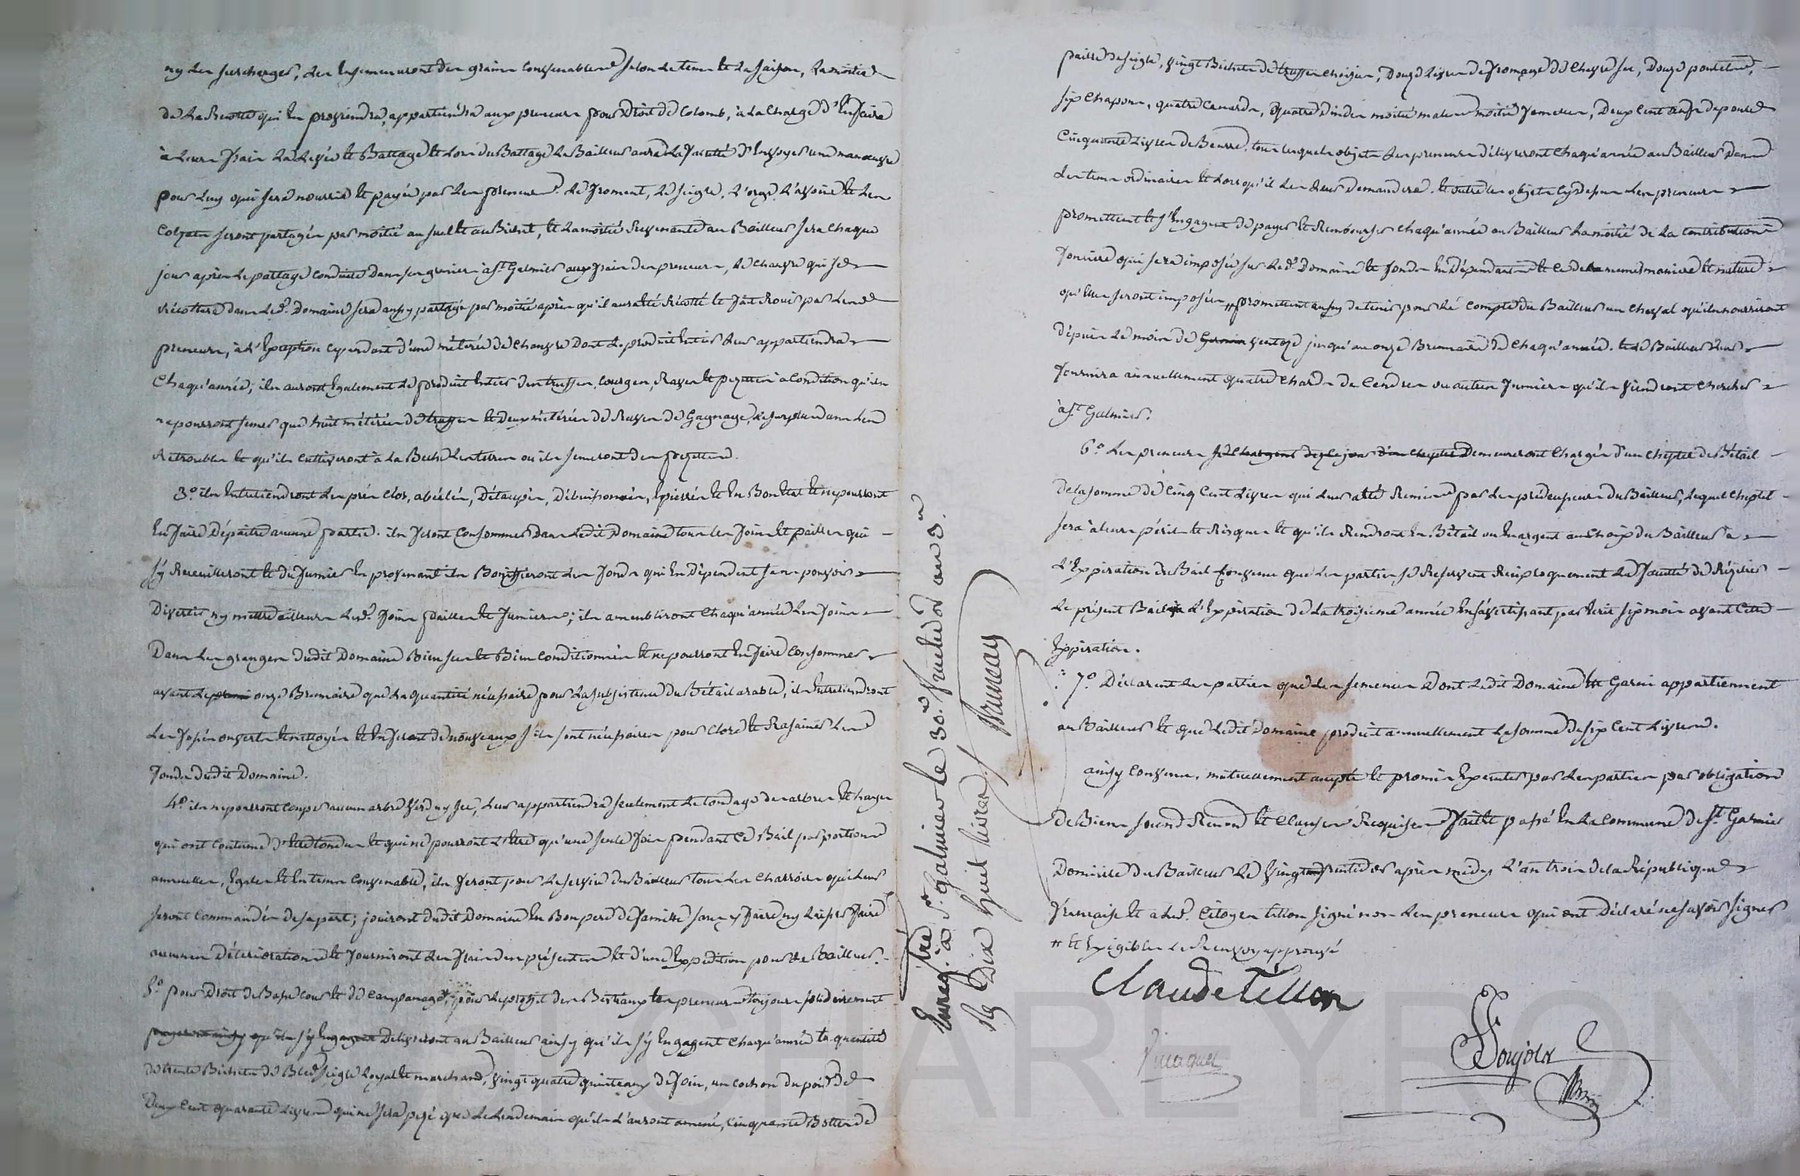 ny les surcharger, les ensemenceront des grains convenables selon le tems et la saison, la moitié
de la Recolte qui en proviendra, appartiendra aux preneurs pour Droit de Colons, à la charge d'En faire
à leurs frais la Levée et Battage et lors du Battage le Bailleur aura la faculté d'Envoyer une manoeuvre
pour luy qui sera nourrie et payée par les preneurs. Le froment, le seigle, l'orge, l'avoine et les
Colzats seront partagés par moitié au suel et au Bichet, et la moitié Revenante au Bailleur sera chaque
jour après le partage conduite dans son grenier à St Galmier aux frais des preneurs, le chanvre qui se
récoltera dans led. Domaine sera aussy partagé par moitié après qu'il aura été récolté et fait Rouir par les d.
preneurs, à l'Exception cependant d'une métérée de Chanvre dont le produit Entier leur appartiendra
Chaqu'année; ils auront Egalement le produit Entier des truffes, courges, Raves et pezettes à Condition qu'ils
ne pourront semer que huit métérées de truffes et deux métérées de Raves de Gagnage, le surplus dans les
Retroubles et qu'ils cultiveront à la Beche les terres ou ils semeront des pezettes.
3.° ils Entretiendront les prés clos, abéalés, Détaupés, Débuissonnés, Epierrés et En Bon Etat et ne pourront
En faire Dépaitre aucune partie. ils feront Consommer dans ledit Domaine tous les foins et pailles qui
s'y Recueilleront et du fumier En provenant ils Bonifieront les fonds qui En Dépendent sans pouvoir
Divertir ny mettre ailleurs lesd. foins pailles et fumiers; ils ameubliront Chaqu'année les foins
Dans les granges dudit Domaine Bien sec et Bien conditionnés et ne pourront En faire consommer
avant le onze Brumaire que la quantité nécessaire pour la subsistence du Bétail arable, ils Entretiendront
les fossés ouverts et nettoyés et En feront de nouveaux s'ils sont nécessaires pour Clore et Rasainer les d.
fonds dudit Domaine.
4.° ils ne pourront couper aucun arbre verd ny sec, leur appartiendra seulement le tondage des arbres et hayes
qui ont coutume d'etre tondus et qui ne pourront L'être qu'une seule fois pendant ce Bail par portions
annuelles, Egales et En tems Convenable, ils feront pour le service du Bailleur tous les Charrois qui leurs
seront Commandés de sa part; jouiront dudit Domaine En Bon pere de famille sans y faire ny laisser faire
aucunes Déteriorations et fourniront les frais des présentes et d'une Expedition pour le Bailleur.
5.° pour Droit de Basse cour et de Campanage, pour le profit des Bestiaux les preneurs toujours solidairement
Delivreront au Bailleur ainsy qu'ils s'y Engagent Chaqu'année la quantité
de trente Bichets de Bled seigle Loyal et marchand, vingt quatre quintaux de foin, un cochon du poids de
Deux Cent quarante Livres qui ne sera pezé que le Lendemain qu'ils l'auront amené, Cinquante Bottes de
Enreg.tré à St galmier le 30.e fructidor an 3.e
R/ Dix huit livres / Bruneau
paille de seigle, vingt Bichets de truffes choisies, Douze Livres de fromage de Chevre sec, Douze poulets,
six Chapons, quatre Canards, quatre dindes moitié males moitié femelles, Deux Cent oeufs de poules
Cinquante Livres de Beurre, tous lesquels objets les preneurs délivreront Chaqu'année au Bailleur Dans
les tems ordinaires et Lorsqu'il les leurs Demandera. et outre les objets cy dessus les preneurs
promettent et s'Engagent de payer et Rembourser Chaqu'année au Bailleur la moitié de la Contribution
fonciere qui sera imposée sur led. Domaine et fonds En Dépendants et ce de la meme maniere et nature
qu'elles seront imposées // promettent aussy de tenir pour le Compte du Bailleur un Cheval qu'ils nourriront
depuis le mois de ventose jusqu'au onze Brumaire de Chaqu'année. et le Bailleur leur
fournira annuellement quatre Chards de Cendres ou autres fumiers qu'ils viendront chercher
à St Galmier.
6.° Les preneurs Demeureront Chargés d'un Cheptel de Bétail
de la somme de Cinq Cent Livres qui leur a été Remise par les prédecesseurs du Bailleur, lequel Cheptel
sera à leurs périls et Risques et qu'ils Rendront En Bétail ou En argent au Choix du Bailleur à
L'Expiration du Bail Convenu que les parties se Reservent Réciproquement la faculté de Résilier
le présent Bail à l'Expiration de la troisieme année En s'avertissant par Ecrit six mois avant lad.
Expiration.
7.° Déclarent les parties que les semences Dont Ledit Domaine Est Garni appartiennent
au Bailleur et que Ledit Domaine produit annuellement la somme de six Cent Livres.
ainsy Convenu, mutuellement accepté et promis Executer par les parties par obligation
de Biens soumis Renond. et Clauses Requises fait et passé En la Commune de St Garnier
Domicile du Bailleur le vingt fructidor après midy L'an trois de la République
française et a Led. Citoyen tillon signé non les preneurs qui ont Déclaré ne savoir signer
// et Exigibles le Renvoy approuvé
Claude tillon